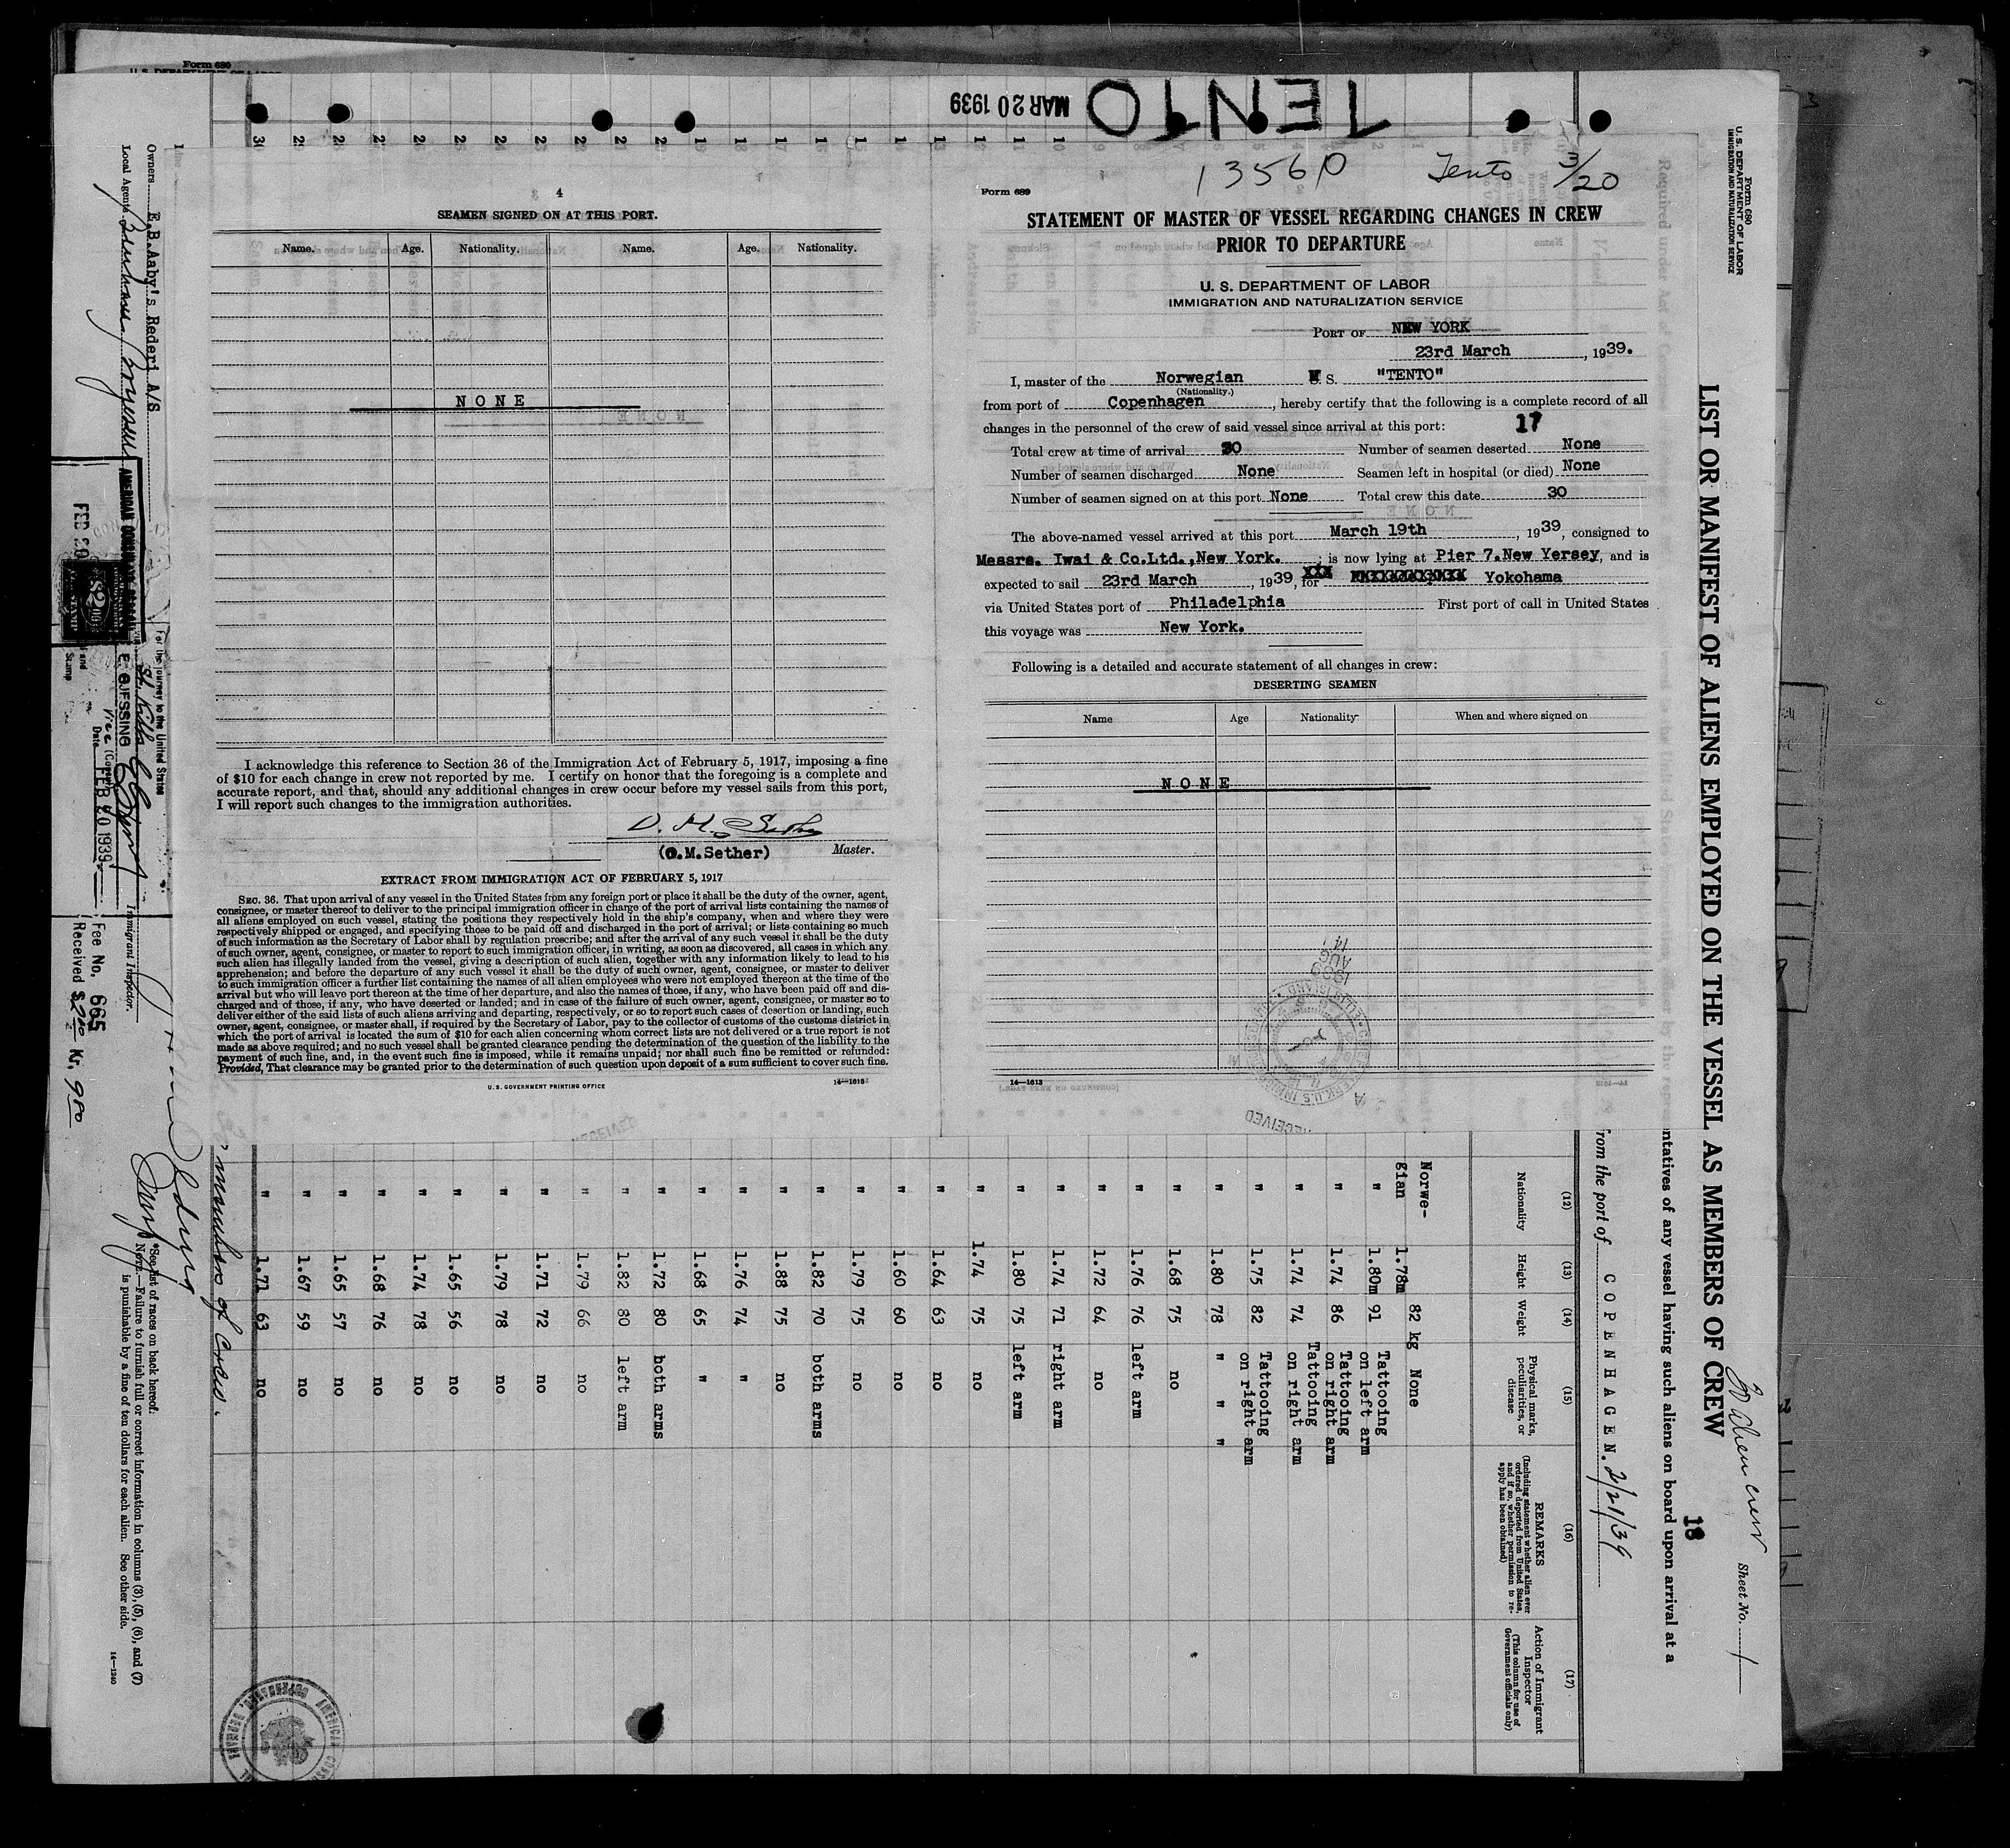 Form 680
U. S. DEPARTMENT OF LABOR
TENTO
MAR 20 1939
1356 P Tento 3/20
4
SEAMEN SIGNED ON AT THIS PORT.
Name. Age. Nationality. Name. Age. Nationality.
NONE
I acknowledge this reference to Section 36 of the Immigration Act of February 5, 1917, imposing a fine
of $10 for each change in crew not reported by me. I certify on honor that the foregoing is a complete and
accurate report, and that, should any additional changes in crew occur before my vessel sails from this port,
I will report such changes to the immigration authorities.
O. M. Sether
(O.M.Sether) Master.
EXTRACT FROM IMMIGRATION ACT OF FEBRUARY 5, 1917
SEC. 36. That upon arrival of any vessel in the United States from any foreign port or place it shall be the duty of the owner, agent,
consignee, or master thereof to deliver to the principal immigration officer in charge of the port of arrival lists containing the names of
all aliens employed on such vessel, stating the positions they respectively hold in the ship's company, when and where they were
respectively shipped or engaged, and specifying those to be paid off and discharged in the port of arrival; or lists containing so much
of such information as the Secretary of Labor shall by regulation prescribe; and after the arrival of any such vessel it shall be the duty
of such owner, agent, consignee, or master to report to such immigration officer, in writing, as soon as discovered, all cases in which any
such alien has illegally landed from the vessel, giving a description of such alien, together with any information likely to lead to his
apprehension; and before the departure of any such vessel it shall be the duty of such owner, agent, consignee, or master to deliver
to such immigration officer a further list containing the names of all alien employees who were not employed thereon at the time of the
arrival but who will leave port thereon at the time of her departure, and also the names of those, if any, who have been paid off and dis-
charged and of those, if any, who have deserted or landed; and in case of the failure of such owner, agent, consignee, or master so to
deliver either of the said lists of such aliens arriving and departing, respectively, or so to report such cases of desertion or landing, such
owner, agent, consignee, or master shall, if required by the Secretary of Labor, pay to the collector of customs of the customs district in
which the port of arrival is located the sum of $10 for each alien concerning whom correct lists are not delivered or a true report is not
made as above required; and no such vessel shall be granted clearance pending the determination of the question of the liability to the
payment of such fine, and, in the event such fine is imposed, while it remains unpaid; nor shall such fine be remitted or refunded:
Provided, That clearance may be granted prior to the determination of such question upon deposit of a sum sufficient to cover such fine.
U. S. GOVERNMENT PRINTING OFFICE 14—1613
Form 689
STATEMENT OF MASTER OF VESSEL REGARDING CHANGES IN CREW
PRIOR TO DEPARTURE
U. S. DEPARTMENT OF LABOR
IMMIGRATION AND NATURALIZATION SERVICE
PORT OF NEW YORK
23rd March, 1939.
I, master of the Norwegian M S. "TENTO"
(Nationality.)
from port of Copenhagen, hereby certify that the following is a complete record of all
changes in the personnel of the crew of said vessel since arrival at this port: 17
Total crew at time of arrival 30 Number of seamen deserted None
Number of seamen discharged None Seamen left in hospital (or died) None
Number of seamen signed on at this port None Total crew this date 30
The above-named vessel arrived at this port March 19th, 1939, consigned to
Messrs. Iwai & Co.Ltd.,New York. ; is now lying at Pier 7.New Yersey, and is
expected to sail 23rd March, 1939, for Yokohama
via United States port of Philadelphia First port of call in United States
this voyage was New York.
Following is a detailed and accurate statement of all changes in crew:
DESERTING SEAMEN
Name Age Nationality When and where signed on
NONE
14—1613
RECEIVED
1939 AUG 14
Form 680
U. S. DEPARTMENT OF LABOR
IMMIGRATION AND NATURALIZATION SERVICE
LIST OR MANIFEST OF ALIENS EMPLOYED ON THE VESSEL AS MEMBERS OF CREW
30 Alien crew Sheet No. 1
18
ntatives of any vessel having such aliens on board upon arrival at a
from the port of COPENHAGEN. 2/21/39
(12) (13) (14) (15) (16) (17)
Nationality Height Weight Physical marks, peculiarities, or disease
REMARKS
(Including statement whether alien ever ordered deported from United States, and if so, whether permission to re-apply has been obtained)
Action of Immigrant Inspector
(This column for use of Government officials only)
Norwe-
gian 1.78m 82 kg None
" 1.80m 91 Tattooing on left arm
" 1.74 86 Tattooing on right arm
" 1.74 74 Tattooing on right arm
" 1.75 82 Tattooing on right arm
" 1.80 78 " " "
" 1.68 75 no
" 1.76 76 left arm
" 1.72 64 no
" 1.74 71 right arm
" 1.80 75 left arm
" 1.74 75 no
" 1.64 63 no
" 1.60 60 no
" 1.79 75 no
" 1.82 70 both arms
" 1.88 75 no
" 1.76 74 "
" 1.68 65 "
" 1.72 80 both arms
" 1.82 80 left arm
" 1.79 66 no
" 1.71 72 no
" 1.79 78 no
" 1.65 56 no
" 1.74 78 no
" 1.68 76 no
" 1.65 57 no
" 1.67 59 no
" 1.71 63 no
members of crew.
Owners E.B.Aaby's Rederi A/S
Local Agents
For the journey to the United States
Immigrant Inspector.
Date FEB 20 1939
Fee No. 665
Received $2.00 Kr. 9.80
*See list of races on back hereof.
NOTE.—Failure to furnish full or correct information in columns (3), (5), (6), and (7)
is punishable by a fine of ten dollars for each alien. See other side.
14—1240